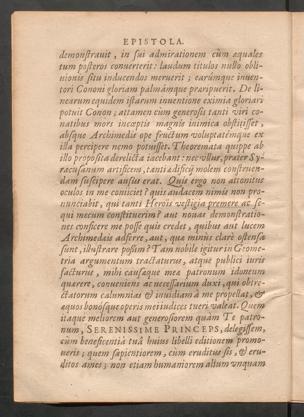 EPISTOLA.
demonstrauit, in sui admirationem cùm æquales
tum posteros conuerterit: laudum titulos nullo obli-
uionis situ inducendos meruerit; earúmque inuen-
tori Cononi gloriam palmámque præripuerit. De li-
nearum equidem istarum inuentione eximia gloriari
potuit Conon; attamen cùm generosis tanti viri co-
natibus mors inceptis magnis inimica obstitisset,
absque Archimedis ope fructum voluptatémque ex
illa percipere nemo potuisset. Theoremata quippe ab
illo proposita derelicta iacebant: nec vllus, præter Sy-
racusanum artificem, tanti ædificij molem construen-
dam suscipere ausus erat. Quis ergo non attonitis
oculis in me coniiciet? quis audacem nimis non pro-
nunciabit, qui tanti Herois vestigia premere ac se-
qui mecum constituerim? aut nouas demonstratio-
nes conficere me posse quis credet, quibus aut lucem
Archimedæis afferre, aut, quæ minus clarè ostensa
sunt, illustrare possim? Tam nobile igitur in Geome-
tria argumentum tractaturus, atque publici iuris
facturus, mihi causæque mea patronum idoneum
quærere, conueniens ac necessarium duxi, qui obtre-
ctatorum calumnias & inuidiam à me propellat, &
æquos bonósque operis mei iudices tueri valeat. Quem
itaque meliorem aut generosiorem quàm Te patro-
num, SERENISSIME PRINCEPS, delegissem,
cùm beneficentia tuâ huius libelli editionem promo-
ueris; quem sapientiorem, cùm eruditus sis, & eru-
ditos ames; non etiam humaniorem alium vnquam